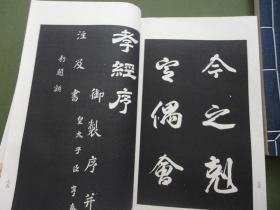 今之剋
偶會
孝經序
御製序并
注及書 皇太子臣亨奉
題額